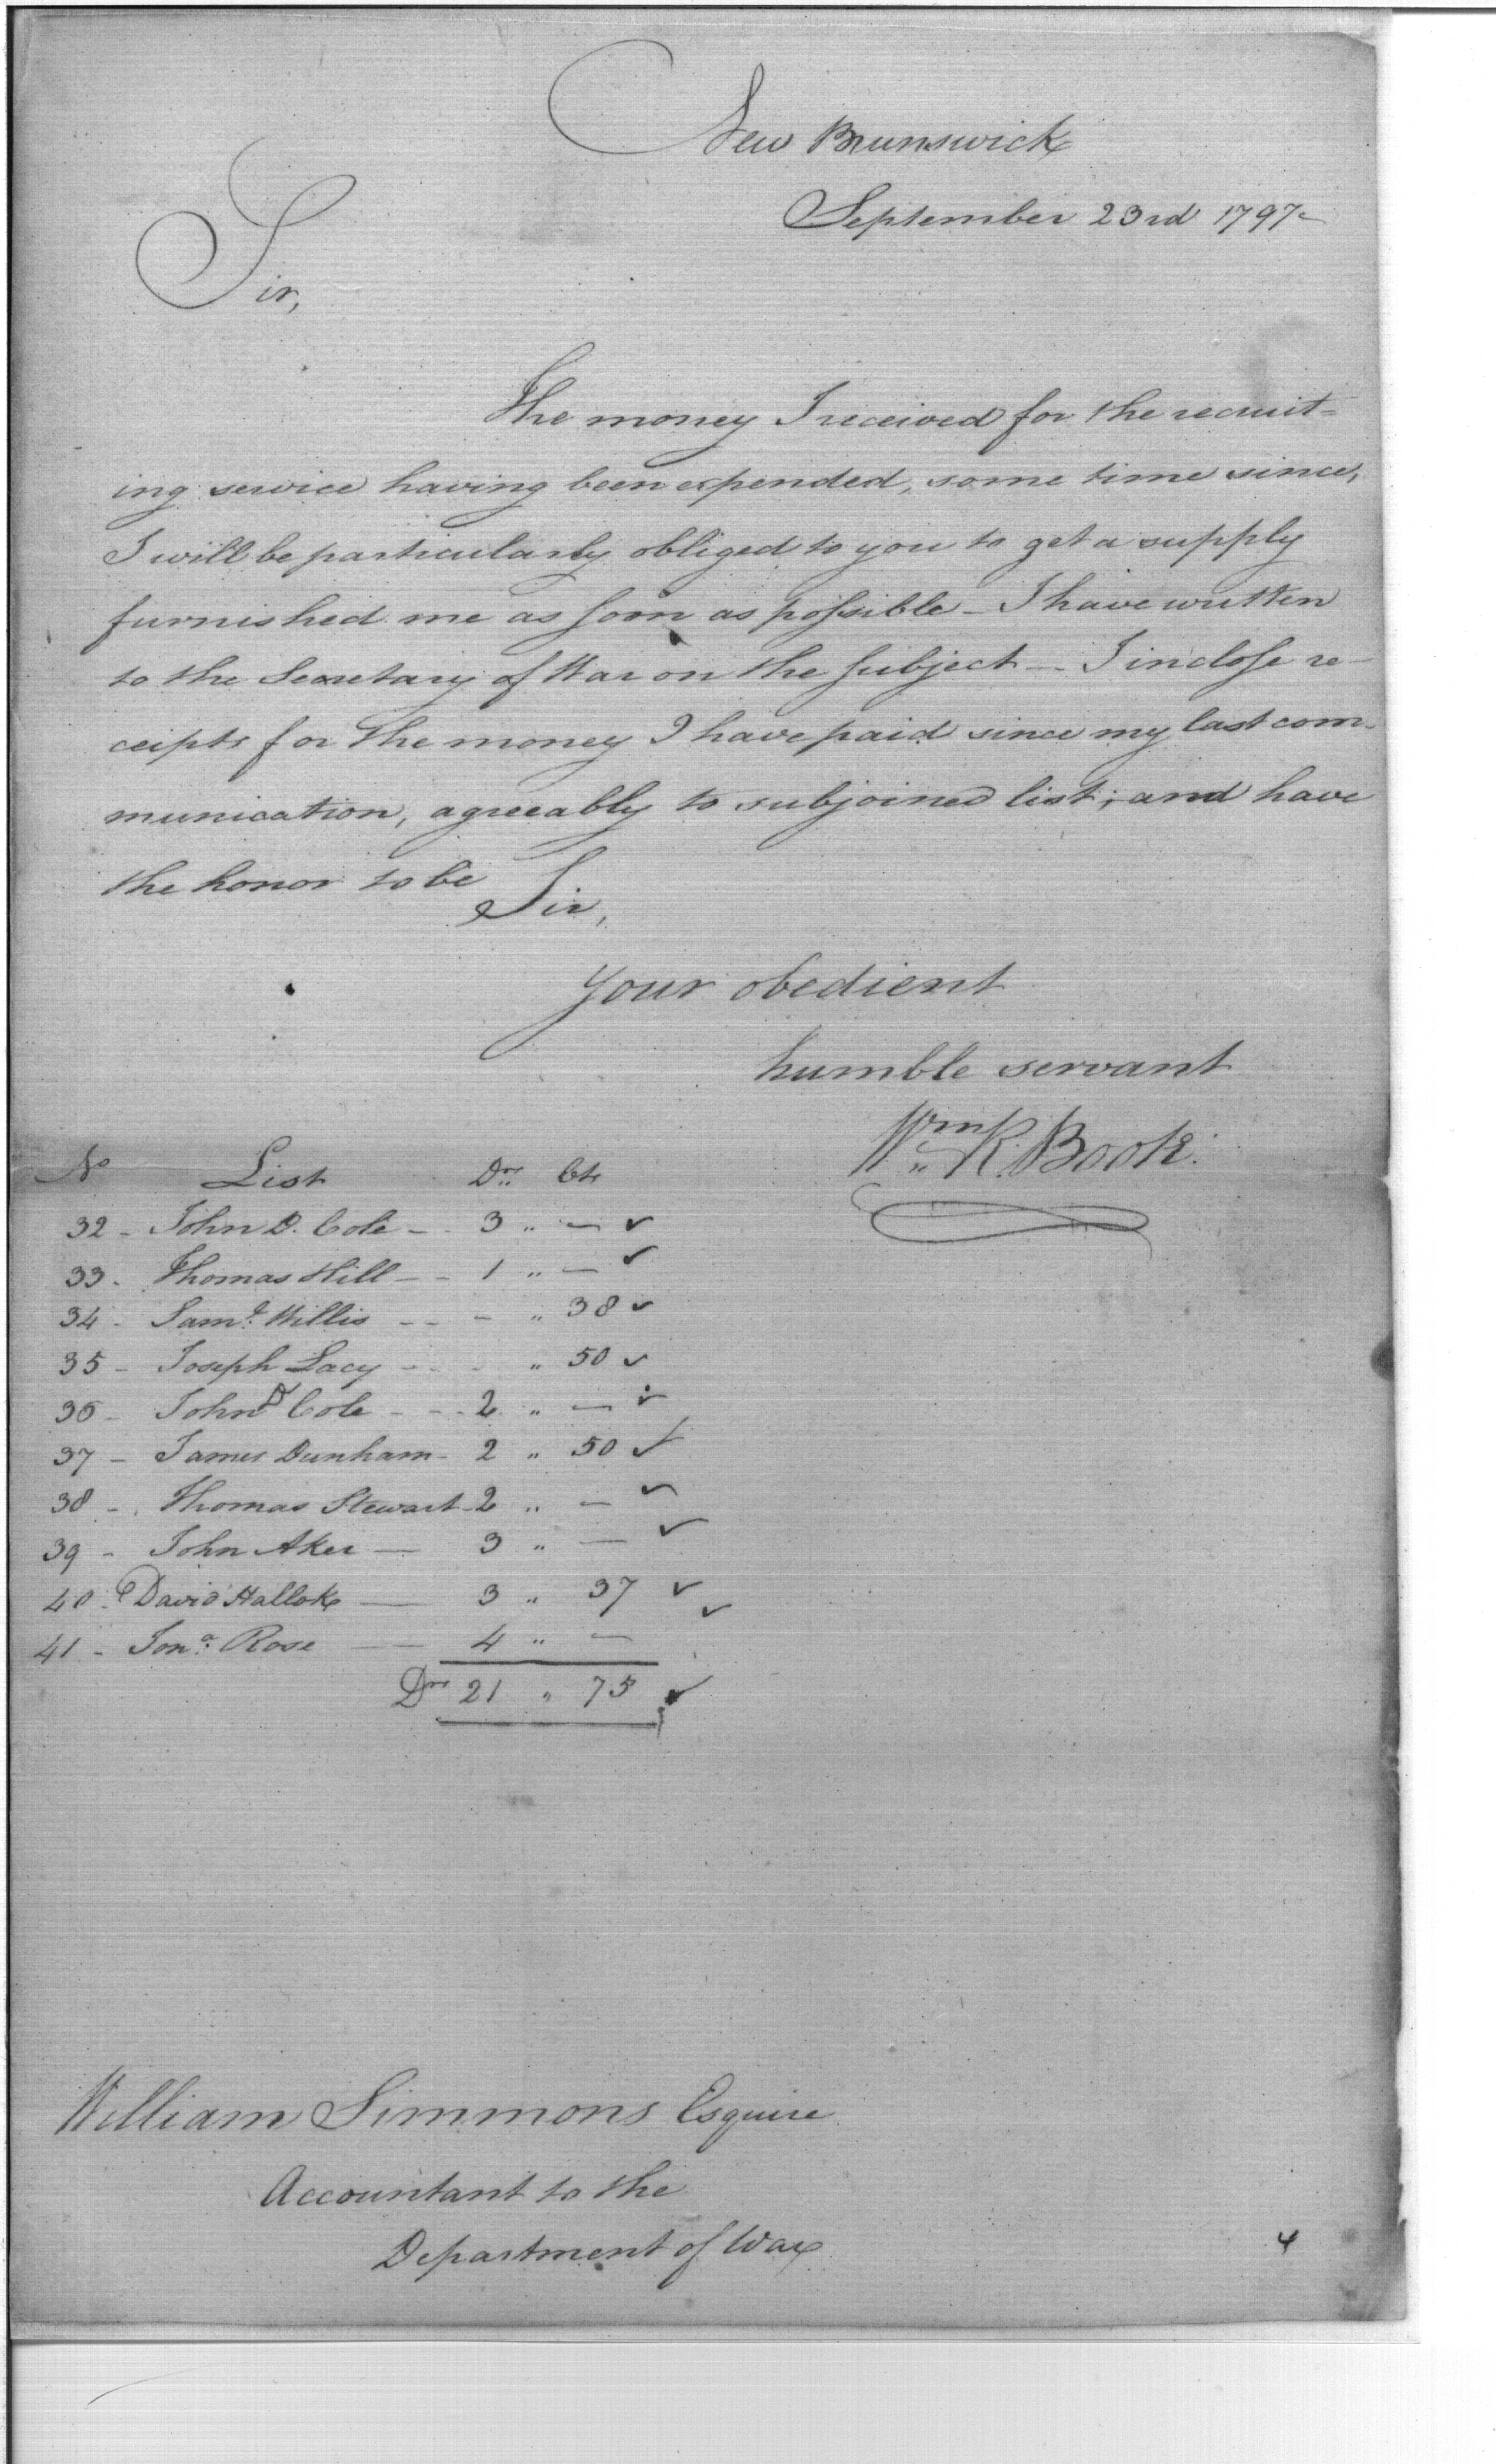 New Brunswick
September 23rd 1797
Sir,
The money I received for the recruit=
ing service having been expended, some time since,
I will be particularly obliged to you to get a supply
furnished me as soon as possible - I have written
to the Secretary of War on the subject - I inclose re-
ceipts for the money I have paid since my last com-
munication, agreeably to subjoined list; and have
the honor to be
Sir,
Your obedient
humble servant
Wm. R. Boote.
No List Drs. Cts
32 - John D. Cole - 3 " - ✓
33. Thomas Hill - - 1 " - ✓
34 - Saml. Willis - - - " 38 ✓
35 - Joseph Lacy - - - " 50 ✓
36 - John D Cole - - - 2 " - ✓
37 - James Dunham - 2 " 50 ✓
38 - Thomas Stewart - 2 " - ✓
39 - John Aker - 3 " - ✓
40. David Hallok - 3 " 37 ✓
41 - Jona. Rose - 4 " - ✓
Drs 21 " 75 ✓
William Simmons Esquire
Accountant to the
Department of War
4